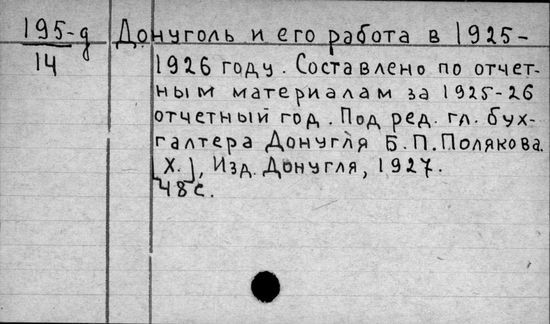 195-д Донуголь и его работа в 1925-
14 1926 году. Составлено по отчет-
ным материалам за 1925-26
отчетный год. Под ред. гл. бух-
галтера Донугля Б. П. Полякова.
[Х.], Изд. Донугля, 1927.
48 с.